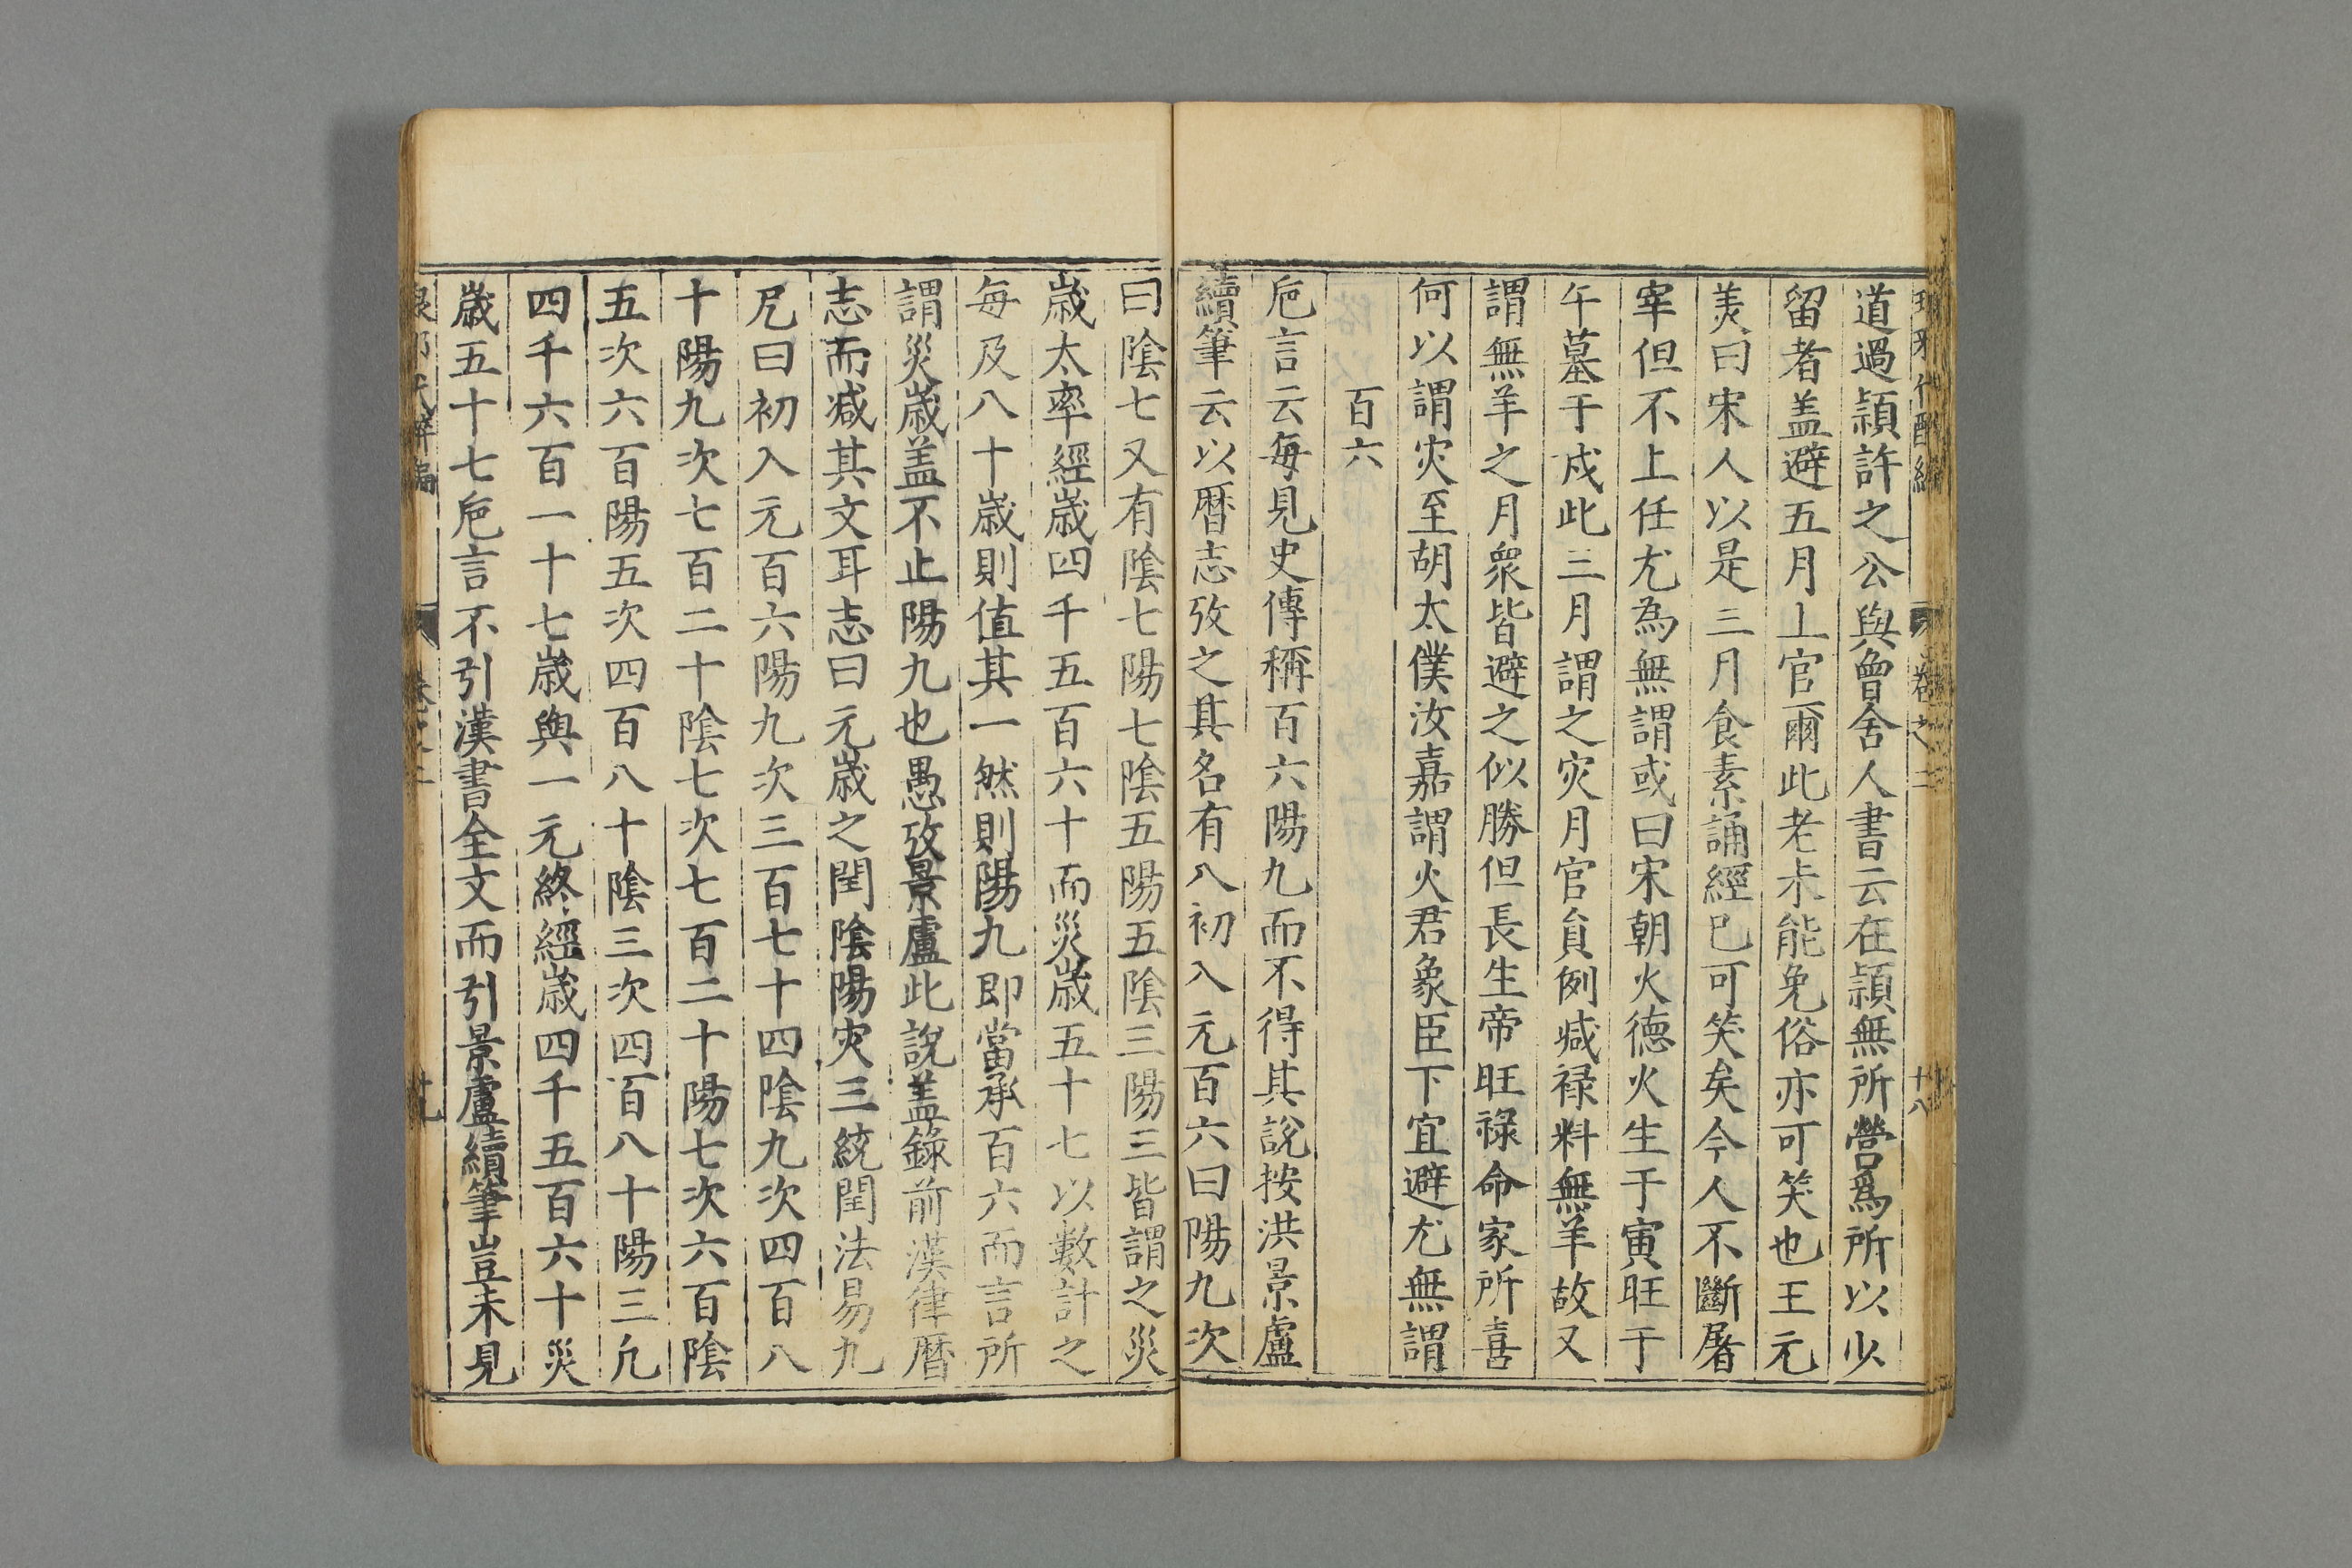 道過頴許之公與曾舍人書云在頴無所營爲所以少
留者盖避五月上官爾此老未能免俗亦可笑也王元
美曰宋人以是三月食素誦經已可笑矣今人不斷屠
宰但不上任尤為無謂或曰宋朝火德火生于寅旺于
午墓于戍此三月謂之灾月官貟例减禄料無羊故又
謂無羊之月衆皆避之似勝但長生帝旺祿命家所喜
何以謂灾至胡太僕汝嘉謂火君象臣下宜避尤無謂
百六
巵言云每見史傳稱百六陽九而不得其說按洪景盧
續筆云以曆志攷之其名有八初入元百六曰陽九次
曰陰七又有陰七陽七陰五陽五陰三陽三皆謂之災
歲太率經歲四千五百六十而災歲五十七以數計之
每及八十歲則值其一然則陽九即當承百六而言所
謂災歲盖不止陽九也愚攷景盧此說盖錄前漢律曆
志而减其文耳志曰元歲之閏陰陽灾三統閏法易九
戹曰初入元百六陽九次三百七十四陰九次四百八
十陽九次七百二十陰七次七百二十陽七次六百陰
五次六百陽五次四百八十陰三次四百八十陽三凢
四千六百一十七歲與一元終經歲四千五百六十災
歲五十七巵言不引漢書全文而引景盧續筆豈未見
卷之二
十八
十九